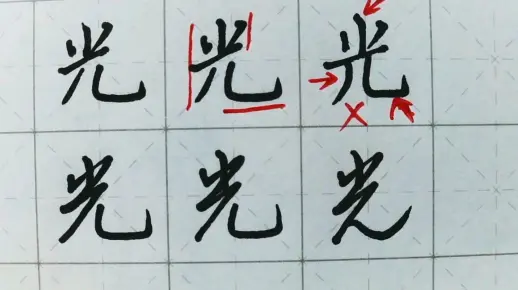 光 光 光
光 光 光